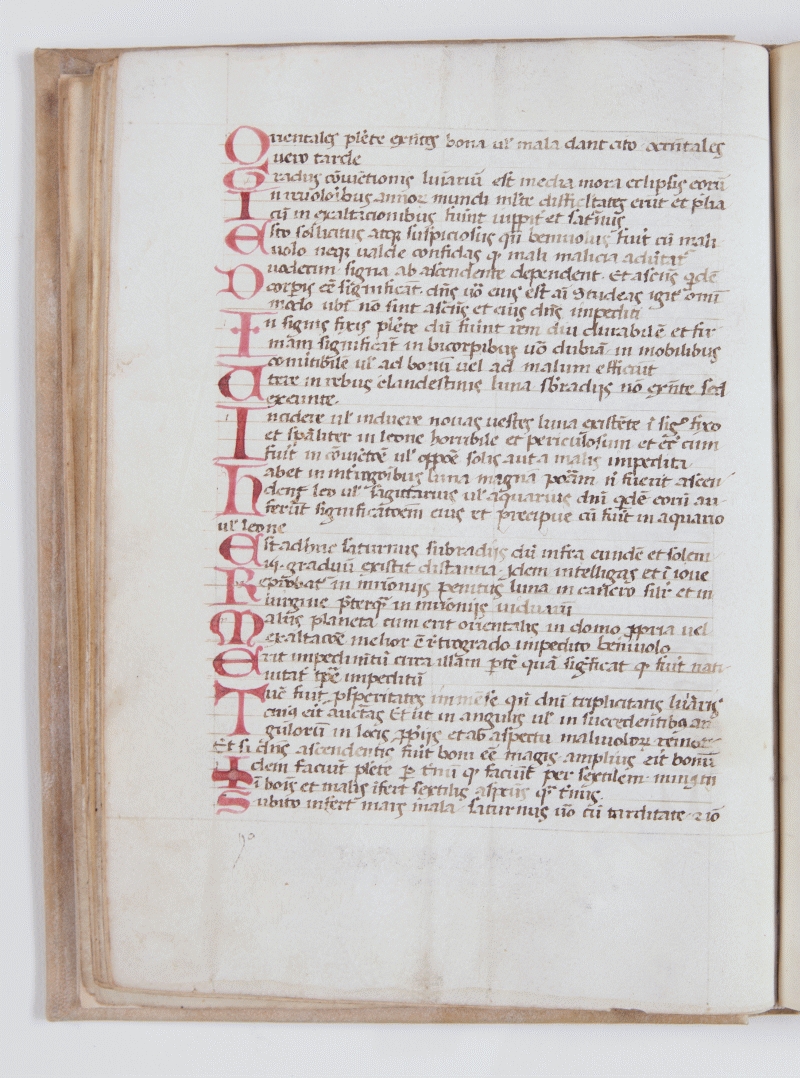 Orientales plete exntes bona ul mala dant cito occntales
uero tarde
Gradus cōuictionis luiariū est media mora eclipsis eorū
In reuoloibus annoɿ mundi mlte difficltates erūt et plia
cū in exaltacionibus fuint iuppit et satnus
Esto sollicitus atqʒ suspiciosus qn beniuolus fuit cū mali
uolo neqʒ ualde confidas q mali malicia
Duodecim signa ab ascendente dependent Et ascns qdē
corpis eē significat dns uō eius est aī Studeas igit omi
modo ubi nō sint ascns et eius dns impediti
In signis fixis plete cū fuint rem diu durabilē et fir
mam significāt in bicorpibus uō dubiā in mobilibus
conūtibile ul ad bonū uel ad malum efficiūt
Utere in rebus clandestinis luna sbradijs nō exnte sed
exeunte
Incidere ul induere nouas uestes luna existēte ī sigo fixo
et spāliter in leone horribile et periculosum et cum
fuit in cōuictōe ul oppōe solis aut a malis impedita
Habet in intrrogoibus luna magnā potam nī fuerit ascen
dens leo ul sagittarius ul aquarius dnī qdē eorū au
ferūt significatoem eius et precipue cū fuit in aquario
ul leone
Est adhuc saturnus subradijs cū infra eundē et solem
graduū existit distantia Idem intelligas et ī ioue
Reprobat in nuonijs penitus luna in cancro silr et in
uirgine pterq in nuonijs uiduarū
Malus planeta cum erit orientalis in domo ppria uel
exaltacōe melior ē retrogrado impedito beniuolo
Erit impedimtū circa illam ptē quā significat q fuit nati
uitat tpe impeditū
Tūc fuit psperitates immēse qn dnī triplicitatis luiaris
auctas Et sit in angulis ul in succedentibus an
gulorū in locis ppijs et ab aspectu maliuoloɿ remot
Et si dns ascendentis fuit boni eē magis amplius erit bonū
Idem faciūt plete p tnū q faciūt per sextilem
ī bois et malis ifert sextilis aspcus qr tnus
Subito infert mars mala saturnus uō cū tarditate
190